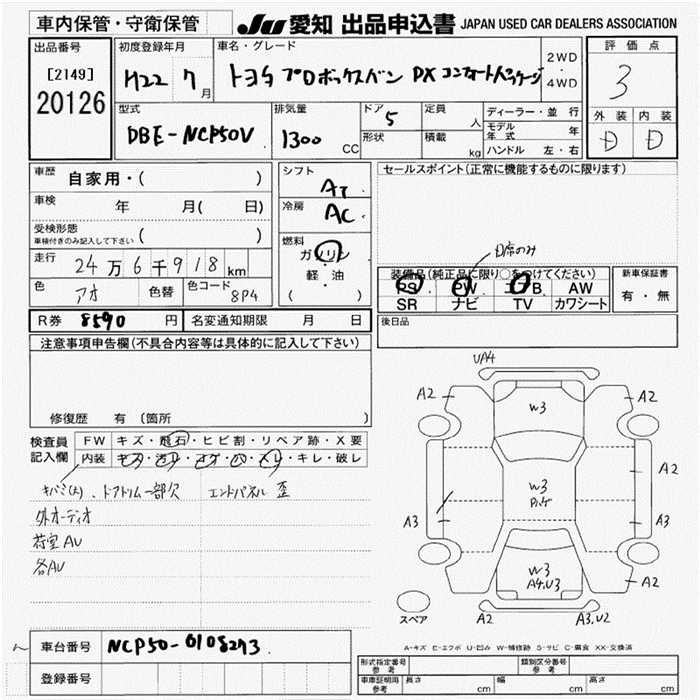 車内保管・守衛保管
JU 愛知 出品申込書 JAPAN USED CAR DEALERS ASSOCIATION
出品番号
[2149]
20126
初度登録年月
H22 7月
車名・グレード
トヨタ プロボックスバン DX コンフォートパッケージ
2WD
・
4WD
評価点
3
外装 内装
D D
型式
DBE-NCP50V
排気量
1300 CC
ドア 5
形状
定員 人
積載 kg
ディーラー・並行
モデル年式 年
ハンドル 左・右
車歴 自家用・( )
車検 年 月( 日)
受検形態
車検付きのみ記入して下さい ( )
走行 24万6千918km
色 アオ 色替 色コード 8P4
シフト AT
冷房 AC
燃料
ガソリン
・
軽油
( )
セールスポイント(正常に機能するものに限ります)
D席のみ
装備品(純正品に限り○をつけてください)
PS PW AB AW
SR ナビ TV カワシート
新車保証書
有・無
R券 8590円 名変通知期限 月 日
後日品
注意事項申告欄(不具合内容等は具体的に記入して下さい)
修復歴 有(箇所 )
検査員記入欄
FW キズ・飛石・ヒビ割・リペア跡・X要
内装 キズ・汚レ・コゲ・穴・スレ・キレ・破レ
キバミ(大)、ドアトリム一部欠 エンドパネル歪
外オーディオ
荷室AU
各AU
UA4
A2 A2
W3
A2
W3
A3 A3
W3
A4,U3
A2
スペア A2 A3,U2
A-キズ E-エクボ U-凹み W-補修跡 S-サビ C-腐食 XX-交換済
車台番号 NCP50-0108273
登録番号
形式指定番号 参考
類別区分番号 参考
車庫証明用 参考 長さ cm 幅 cm 高さ cm